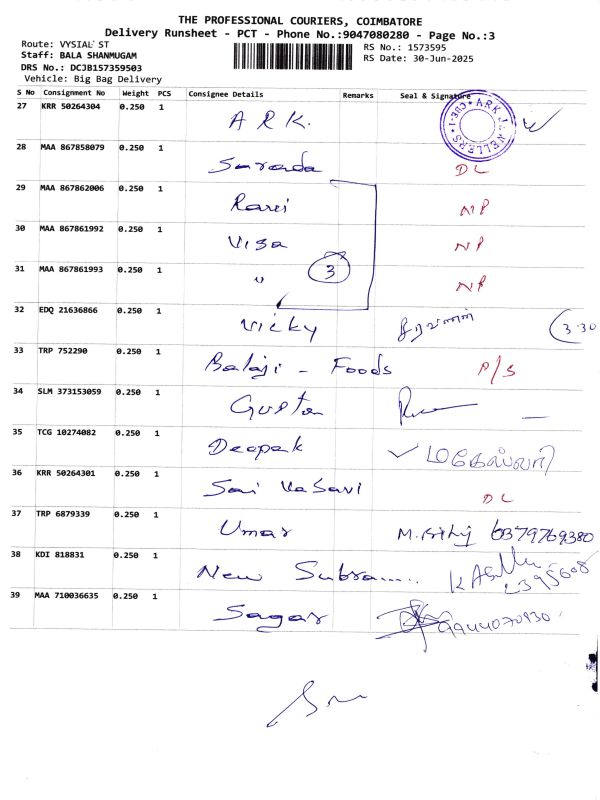 THE PROFESSIONAL COURIERS, COIMBATORE
Delivery Runsheet - PCT - Phone No.:9047080280 - Page No.:3
Route: VYSIAL ST
Staff: BALA SHANMUGAM
DRS No.: DCJB157359503
Vehicle: Big Bag Delivery
RS No.: 1573595
RS Date: 30-Jun-2025
S No Consignment No Weight PCS Consignee Details Remarks Seal & Signature
27 KRR 50264304 0.250 1 A R K.
ARK JEWELLERS CBE-1
28 MAA 867858079 0.250 1 Sarada DL
29 MAA 867862006 0.250 1 NP
30 MAA 867861992 0.250 1 Visa NP
31 MAA 867861993 0.250 1 " 3 NP
32 EDQ 21636866 0.250 1 Vicky சரவணன் 3.30
33 TRP 752290 0.250 1 Balaji - Foods P/S
34 SLM 373153059 0.250 1
35 TCG 10274082 0.250 1 Deepak மகேஸ்வரி
36 KRR 50264301 0.250 1 Sai Vasavi DL
37 TRP 6879339 0.250 1 Umar 6379769380
38 KDI 818831 0.250 1 New Subra.....
39 MAA 710036635 0.250 1 Sagar 9944070930